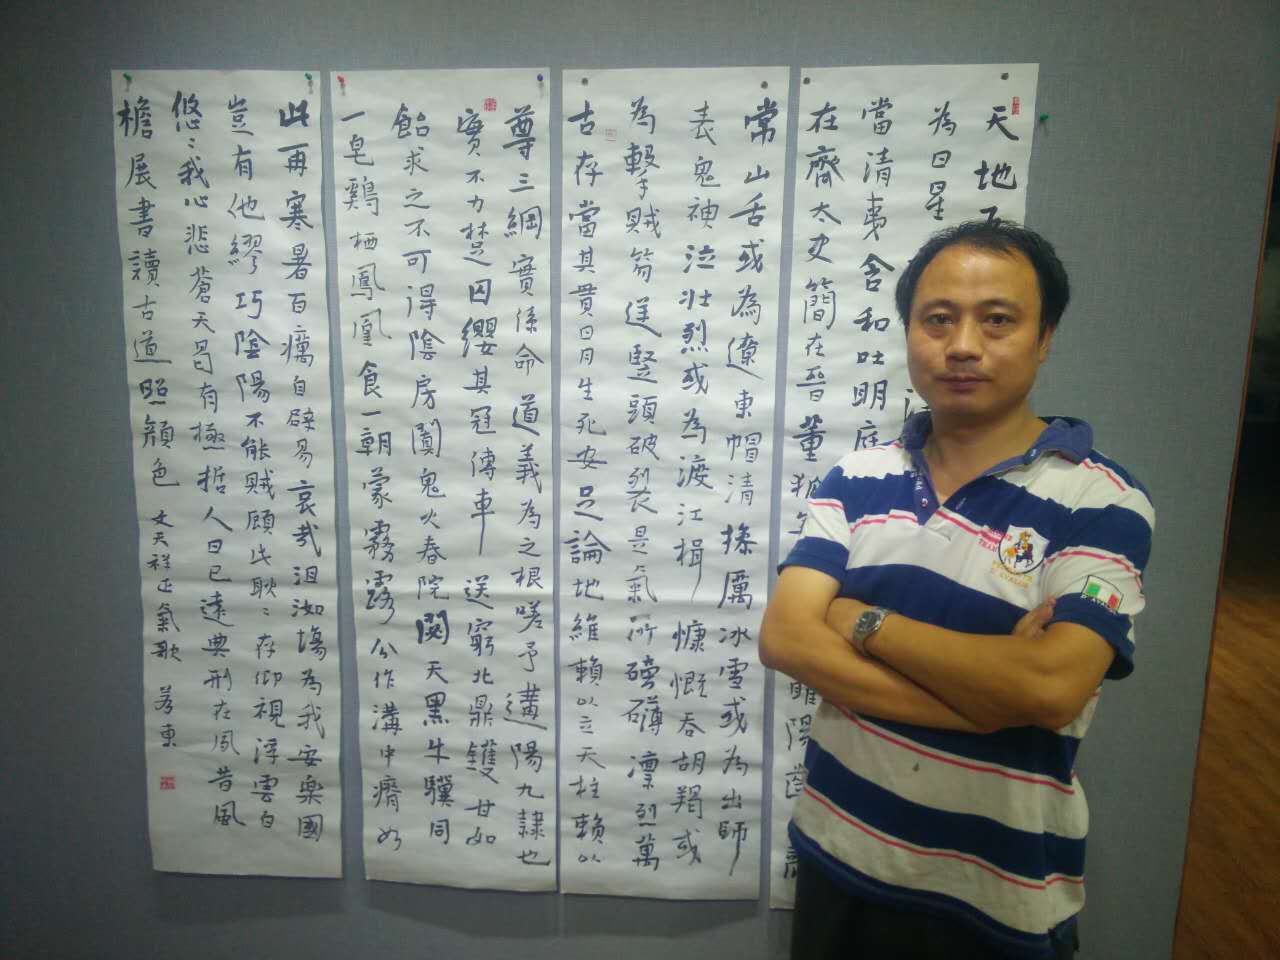 天地
為日星
當清夷含和吐明庭
在齊太史簡在晉董狐
睢陽齒為
常山舌或為遼東帽清操厲冰雪或為出師
表鬼神泣壯烈或為渡江楫慷慨吞胡羯或
為擊賊笏逆豎頭破裂是氣所磅礴凜烈萬
古存當其貫日月生死安足論地維賴以立天柱賴以
尊三綱實係命道義為之根嗟予遘陽九隸也
實不力楚囚纓其冠傳車送窮北鼎鑊甘如
飴求之不可得陰房闃鬼火春院閟天黑牛驥同
一皂鷄栖鳳凰食一朝蒙霧露分作溝中瘠如
此再寒暑百癘自辟易哀哉沮洳場為我安樂國
豈有他繆巧陰陽不能賊顧此耿〻存仰視浮雲白
悠〻我心悲蒼天曷有極哲人日已遠典刑在夙昔風
檐展書讀古道照顏色 文天祥正氣歌 東